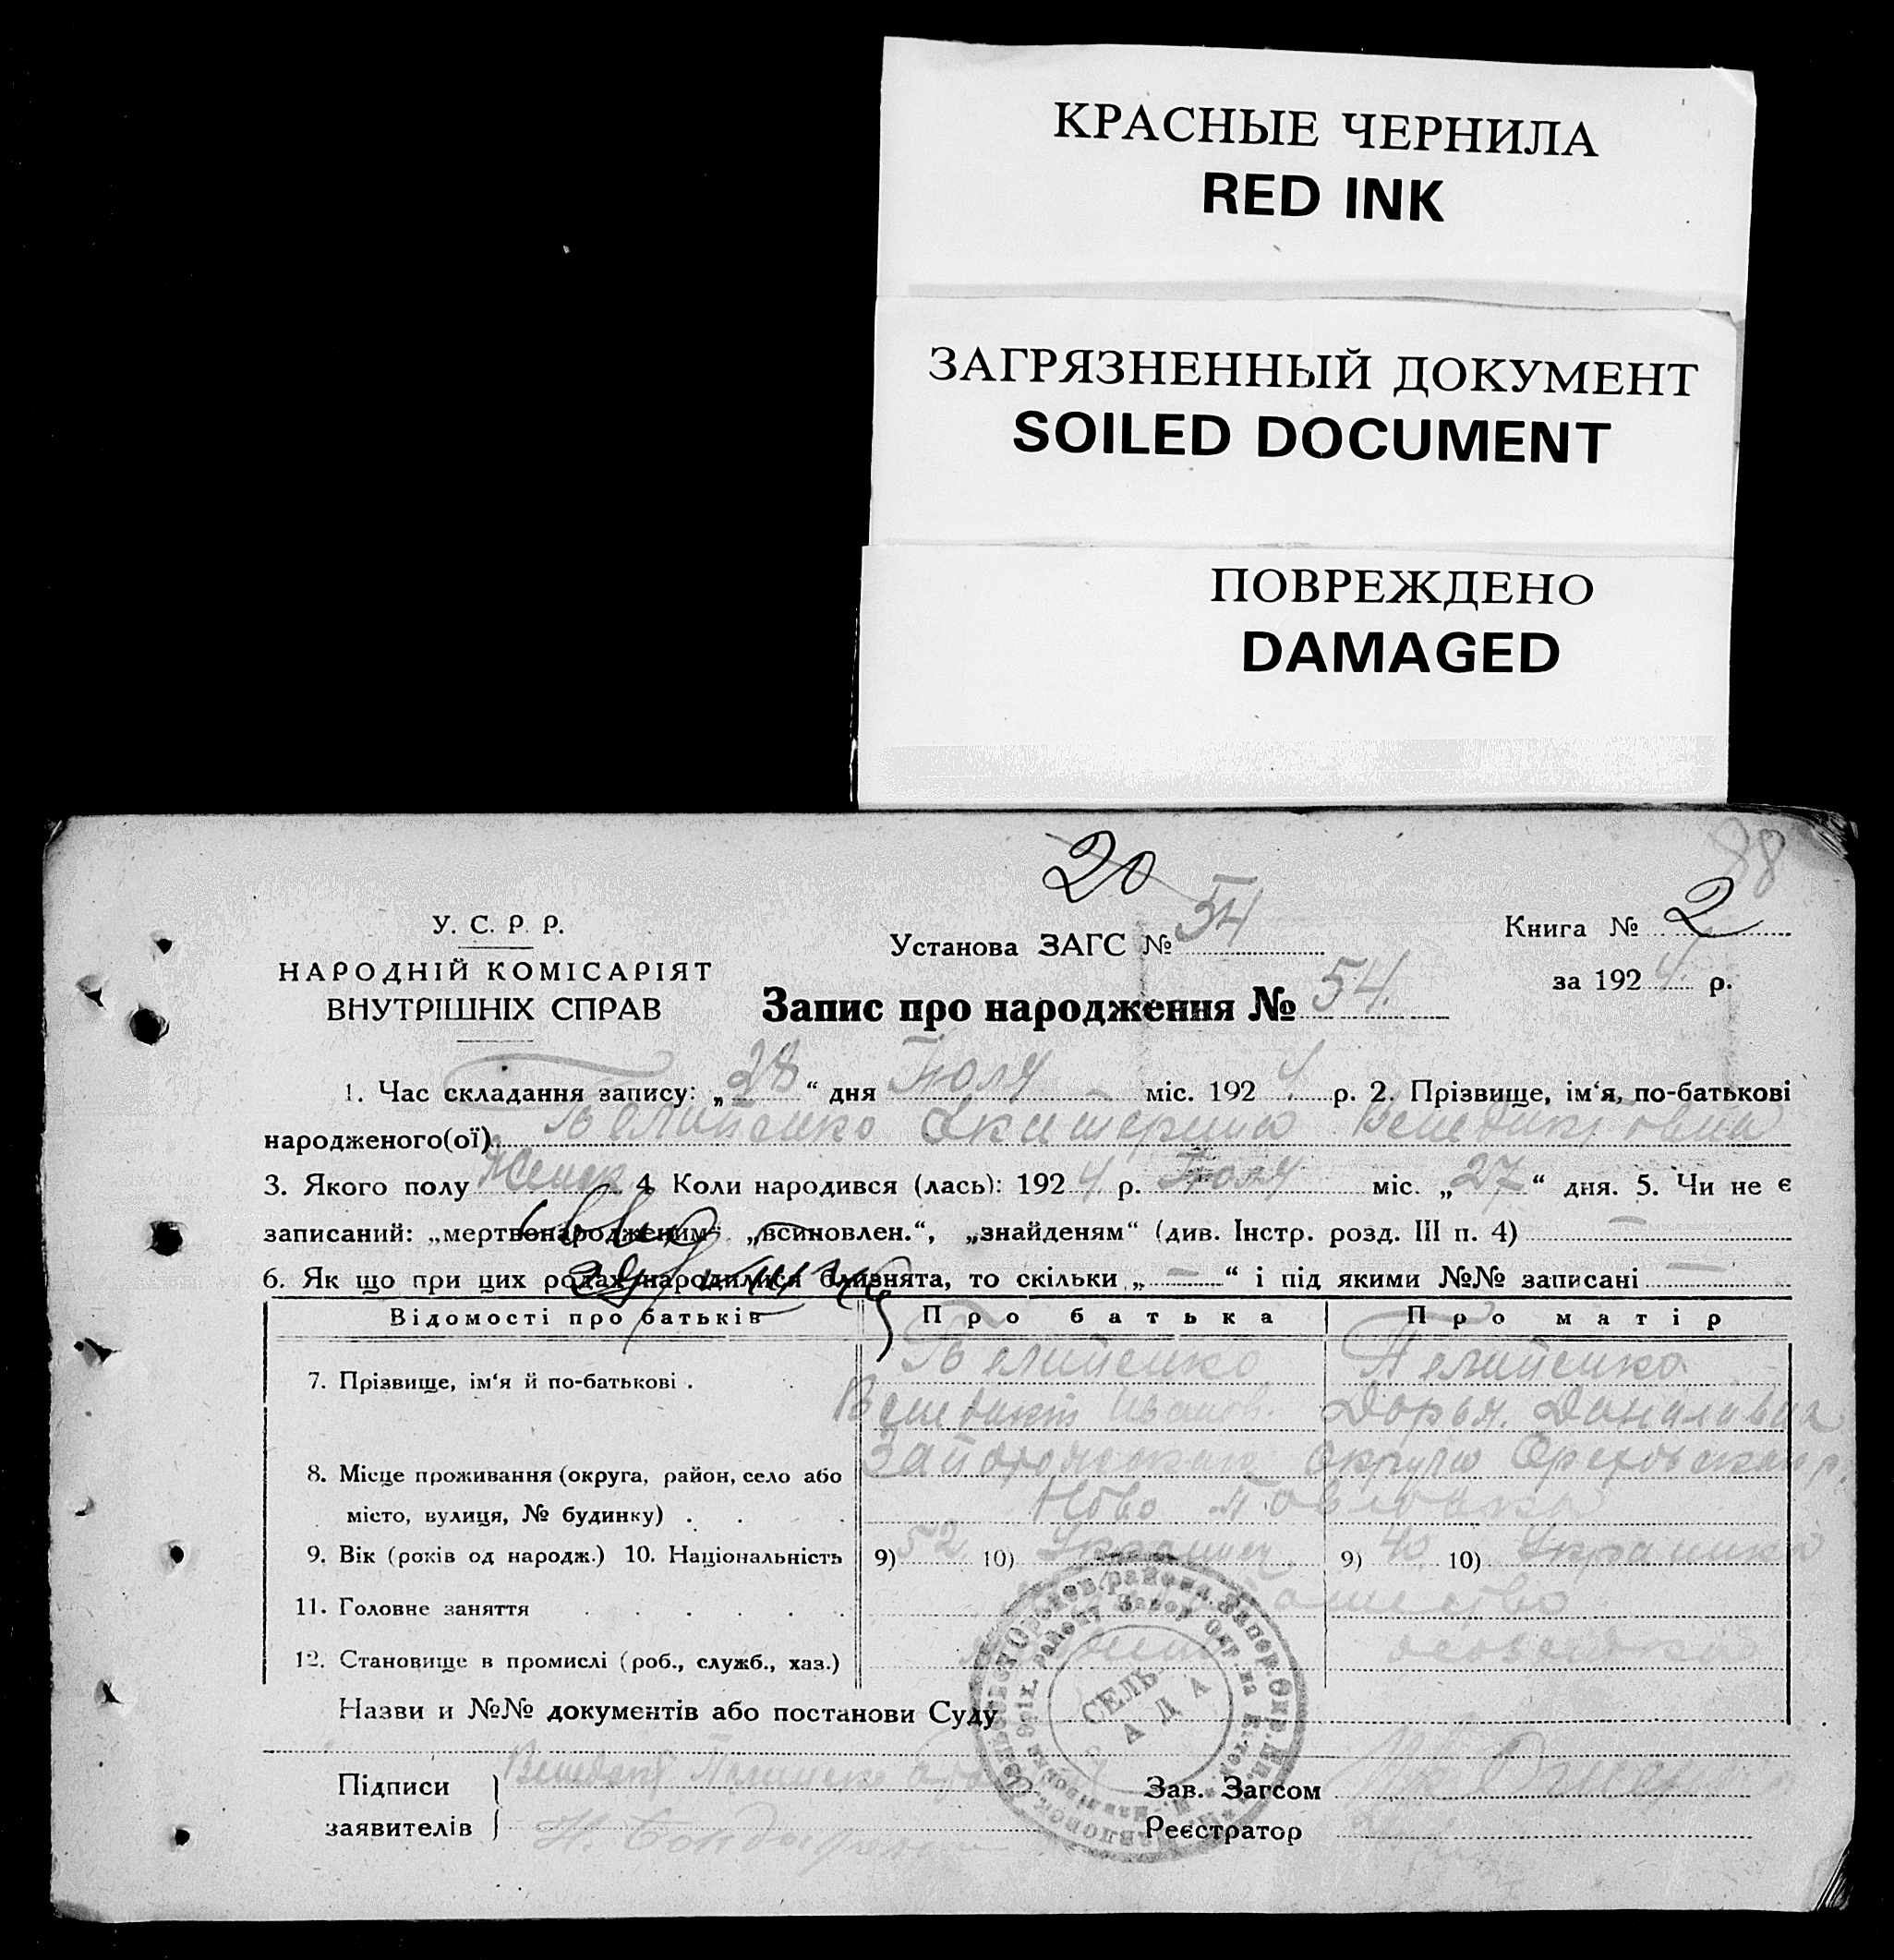 КРАСНЫЕ ЧЕРНИЛА
RED INK
ЗАГРЯЗНЕННЫЙ ДОКУМЕНТ
SOILED DOCUMENT
ПОВРЕЖДЕНО
DAMAGED
88
20
54
У. С. Р. Р.
Установа ЗАГС №
Книга № 2
НАРОДНІЙ КОМІСАРІЯТ
за 1924 р.
ВНУТРІШНІХ СПРАВ
Запис про народження № 54.
1. Час складання запису: „28“ дня Июля міс. 1924 р. 2. Прізвище, ім‘я, по-батькові
народженого(ої) Екатерина Венедиктовна
3. Якого полу Женск 4. Коли народився (лась): 1924 р. Июля міс. „27“ дня. 5. Чи не є
записаний: „мертвонародженим“ „всиновлен.“, „знайденям“ (див. Інстр. розд. III п. 4) —
6. Як що при цих родах народилися близнята, то скільки „ — “ і під якими №№ записані —
Відомості про батьків Про батька Про матір
7. Прізвище, ім‘я й по-батькові . Пелипенко Пелипенко
Венедикт Иванов. Дарья Даниловна
8. Місце проживання (округа, район, село або Запорожская округа Ореховский р.
місто, вулиця, № будинку) . . . Ново Павловка
9. Вік (років од народж.) 10. Національність 9) 52 10) Украинец 9) 40 10) Украинка
11. Головне заняття . . . . . .
12. Становище в промислі (роб., служб., хаз.)
Назви и №№ документів або постанови Суду
СЕЛЬ
РАДА
Підписи Венедикт
Зав. Загсом
заявителів Н. Бондаренко
Реєстратор